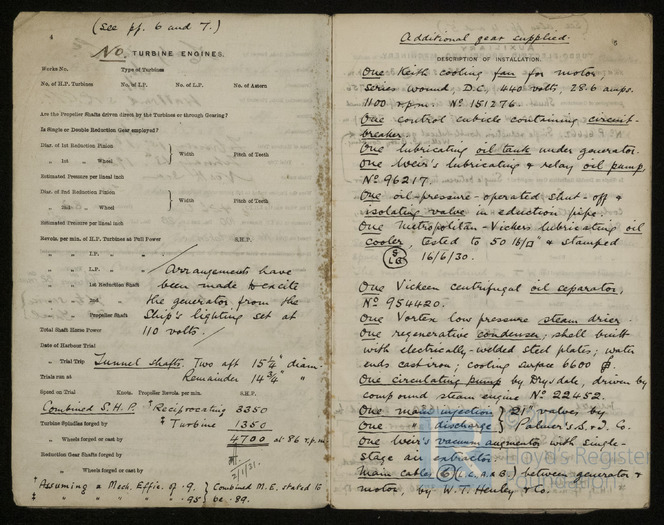 (See pp. 6 and 7.)
4
No. TURBINE ENGINES.
Works No. Type of Turbines
No. of H.P. Turbines No. of I.P. No. of L.P. No. of Astern
Are the Propeller Shafts driven direct by the Turbines or through Gearing?
Is Single or Double Reduction Gear employed?
Diar. of 1st Reduction Pinion
" 1st " Wheel } Width Pitch of Teeth
Estimated Pressure per lineal inch
Diar. of 2nd Reduction Pinion
" 2nd " Wheel } Width Pitch of Teeth
Estimated Pressure per lineal inch
Revols. per min. of H.P. Turbines at Full Power S.H.P.
" " I.P. "
" " L.P. "
" " 1st Reduction Shaft
" " 2nd "
" " Propeller Shaft
Arrangements have
been made to excite
the generator from the
Ship's lighting set at
110 volts.
Total Shaft Horse Power
Date of Harbour Trial
" Trial Trip Tunnel shafts Two aft 15¼" diam.
Trials run at Remainder 14¾" "
Speed on Trial Knots. Propeller Revols. per min. S.H.P.
Combined S.H.P. † Reciprocating 3350
Turbine Spindles forged by ‡ Turbine 1350
" Wheels forged or cast by 4700 at 86 r.p.m.
Reduction Gear Shafts forged by
" Wheels forged or cast by
† Assuming a Mech. Effic. of .9. } Combined M.E. stated to
‡ " " " " .95 } be .89.
5
Additional gear supplied.
DESCRIPTION OF INSTALLATION.
One Keith cooling fan for motor
series wound, D.C., 440 volts, 28.6 amps.
1100 r.p.m. No 151276.
One control cubicle containing circuit-
breaker.
One lubricating oil tank under generator.
One Weir's lubricating & relay oil pump,
No 96217.
One oil-pressure-operated shut-off &
isolating valve in eduction pipe.
One Metropolitan-Vickers lubricating oil
cooler, tested to 50 lb/□" & stamped
16/6/30.
One Vickeen centrifugal oil separator,
No 954420.
One Vortex low pressure steam drier.
One regenerative condenser; shell built
with electrically-welded steel plates; water
ends cast iron; cooling surface 6600
One circulating pump by Drysdale, driven by
compound steam engine No 22452.
One main injection } 21" valves by
One " discharge } Palmer's S. & I. Co.
One Weir's vacuum augmentor with single-
stage air extractor.
Main cables 6 (L.C. A & B.) between generator &
motor, by W. T. Henley & Co.
Lloyd's Register
Foundation